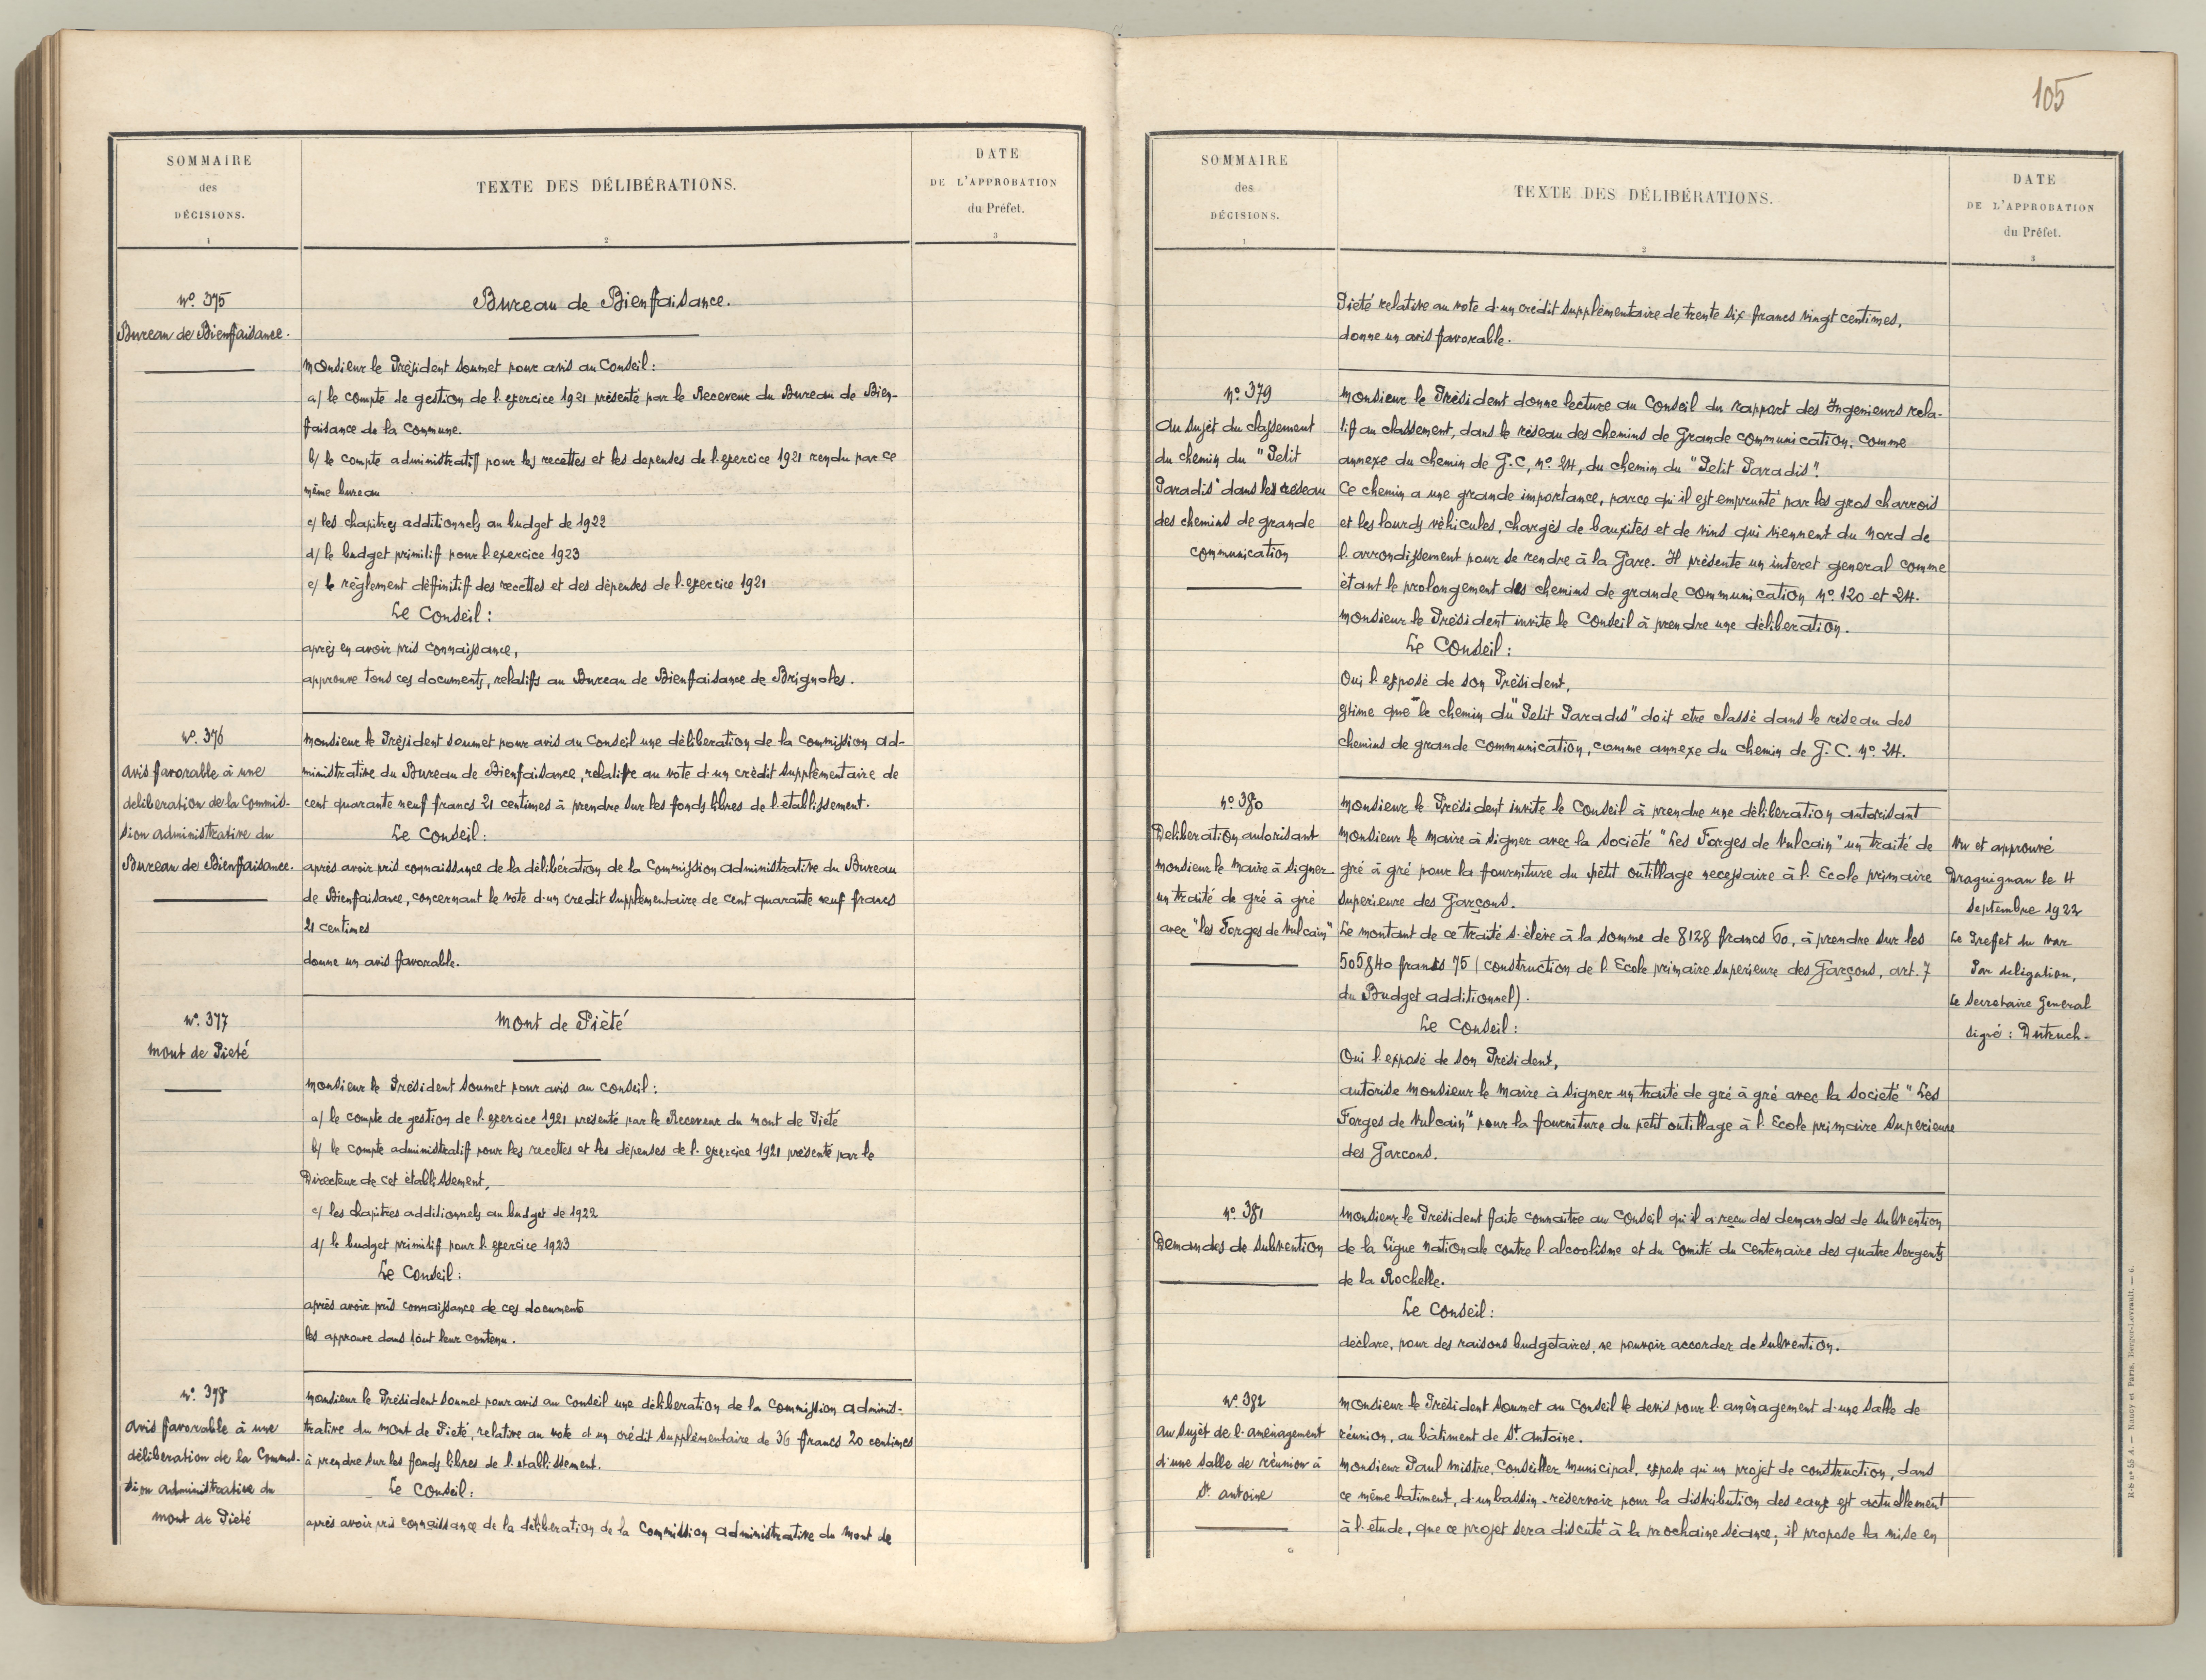 105
SOMMAIRE
des
DÉCISIONS.
1
TEXTE DES DÉLIBÉRATIONS.
2
DATE
DE L'APPROBATION
du Préfet.
3
N° 375
Bureau de Bienfaisance.
Bureau de Bienfaisance.
Monsieur le Président soumet pour avis au Conseil:
a/ le compte de gestion de l'exercice 1921 présenté par le Receveur du Bureau de Bien-
faisance de la Commune.
b/ le compte administratif pour les recettes et les depenses de l'exercice 1921 rendu par ce
même bureau
c/ les chapitres additionnels au budget de 1922
d/ le budget primitif pour l'exercice 1923
e/ le règlement déffinitif des recettes et des dépenses de l'exercice 1921
Le Conseil:
après en avoir pris connaissance,
approuve tous ces documents, relatifs au Bureau de Bienfaisance de Brignoles.
N° 376
Avis favorable à une
deliberation de la Commis-
sion administrative du
Bureau de Bienfaisance.
Monsieur le Président soumet pour avis au Conseil une déliberation de la Commission ad-
ministrative du Bureau de Bienfaisance, relative au vote d'un crédit supplémentaire de
cent quarante neuf francs 21 centimes à prendre sur les fonds libres de l'etablissement.
Le Conseil:
après avoir pris connaissance de la délibération de la Commission administrative du Bureau
de Bienfaisance, concernant le vote d'un credit supplémentaire de cent quarante neuf francs
21 centimes
donne un avis favorable.
N° 377
Mont de Pieté
Mont de Piété
Monsieur le Président soumet pour avis au Conseil:
a/ le compte de gestion de l'exercice 1921 présenté par le Receveur du Mont de Pieté
b/ le compte administratif pour les recettes et les dépenses de l'exercice 1921 présenté par le
Directeur de cet établissement,
c/ les chapitres additionnels au budget de 1922
d/ le budget primitif pour l'exercice 1923
Le Conseil:
après avoir pris connaissance de ces documents
les approuve dans tout leur contenu.
N° 378
Avis favorable à une
déliberation de la Commis-
sion administrative du
Mont de Pieté
Monsieur le Président soumet pour avis au Conseil une déliberation de la Commission adminis-
trative du Mont de Pieté, relative au vote d'un crédit supplémentaire de 36 francs 20 centimes
à prendre sur les fonds libres de l'etablissement.
Le Conseil:
après avoir pris connaissance de la déliberation de la Commission administrative du Mont de
SOMMAIRE
des
DÉCISIONS.
1
TEXTE DES DÉLIBÉRATIONS.
2
DATE
DE L'APPROBATION
du Préfet.
3
Pieté relative au vote d'un crédit supplémentaire de trente six francs vingt centimes,
donne un avis favorable.
N° 379
Au sujet du classement
du chemin du "Petit
Paradis" dans le réseau
des chemins de grande
communication
Monsieur le Président donne lecture au Conseil du rapport des Ingenieurs rela-
tif au classement, dans le réseau des chemins de Grande communication, comme
annexe du chemin de G.C, N° 24, du chemin du "Petit Paradis".
Ce chemin a une grande importance, parce qu'il est emprunté par les gros charrois
et les lourds véhicules, chargés de bauxites et de vins qui viennent du Nord de
l'arrondissement pour se rendre à la Gare. Il présente un interet general comme
étant le prolongement des chemins de grande communication N° 120 et 24.
Monsieur le Président invite le Conseil à prendre une déliberation.
Le Conseil:
Oui l'exposé de son Président,
estime que le chemin du "Petit Paradis" doit etre classé dans le réseau des
chemins de grande communication, comme annexe du chemin de G.C. N° 24.
N° 380
Deliberation autorisant
Monsieur le Maire à signer
un traité de gré à gré
avec "les Forges de Vulcain"
Monsieur le Président invite le Conseil à prendre une déliberation autorisant
Monsieur le Maire à signer avec la Société "Les Forges de Vulcain" un traité de
gré à gré pour la fourniture du petit outillage necessaire à l'Ecole primaire
superieure des Garçons.
Le montant de ce traité s'élève à la somme de 8128 francs 60, à prendre sur les
505840 francs 75 (construction de l'Ecole primaire superieure des Garçons, art. 7
du Budget additionnel).
Le Conseil:
Oui l'exposé de son Président,
autorise Monsieur le Maire à signer un traité de gré à gré avec la Societé "Les
Forges de Vulcain" pour la fourniture du petit outillage à l'Ecole primaire Superieure
des Garcons.
Vu et approuvé
Draguignan le 4
Septembre 1922
Le Preffet du Var
Par deligation,
Le Secretaire General
Signé: Dutruch.
N° 381
Demandes de Subvention
Monsieur le Président faite connaitre au Conseil qu'il a reçu des demandes de subvention
de la Ligue Nationale contre l'alcoolisme et du Comité du Centenaire des quatre Sergents
de la Rochelle.
Le Conseil:
déclare, pour des raisons budgétaires, ne pouvoir accorder de subvention.
N° 382
Au sujet de l'aménagement
d'une salle de réunion à
St Antoine
Monsieur le Président soumet au Conseil le devis pour l'aménagement d'une salle de
réunion, au bâtiment de St Antoine.
Monsieur Paul Mistre, Conseiller Municipal, expose qu'un projet de construction, dans
ce même batiment, d'un bassin-réservoir pour la distribution des eaux est actuellement
à l'etude, que ce projet sera discuté à la prochaine séance; il propose la mise en
R-S n° 55 A. — Nancy et Paris. Berger-Levrault. — 6.